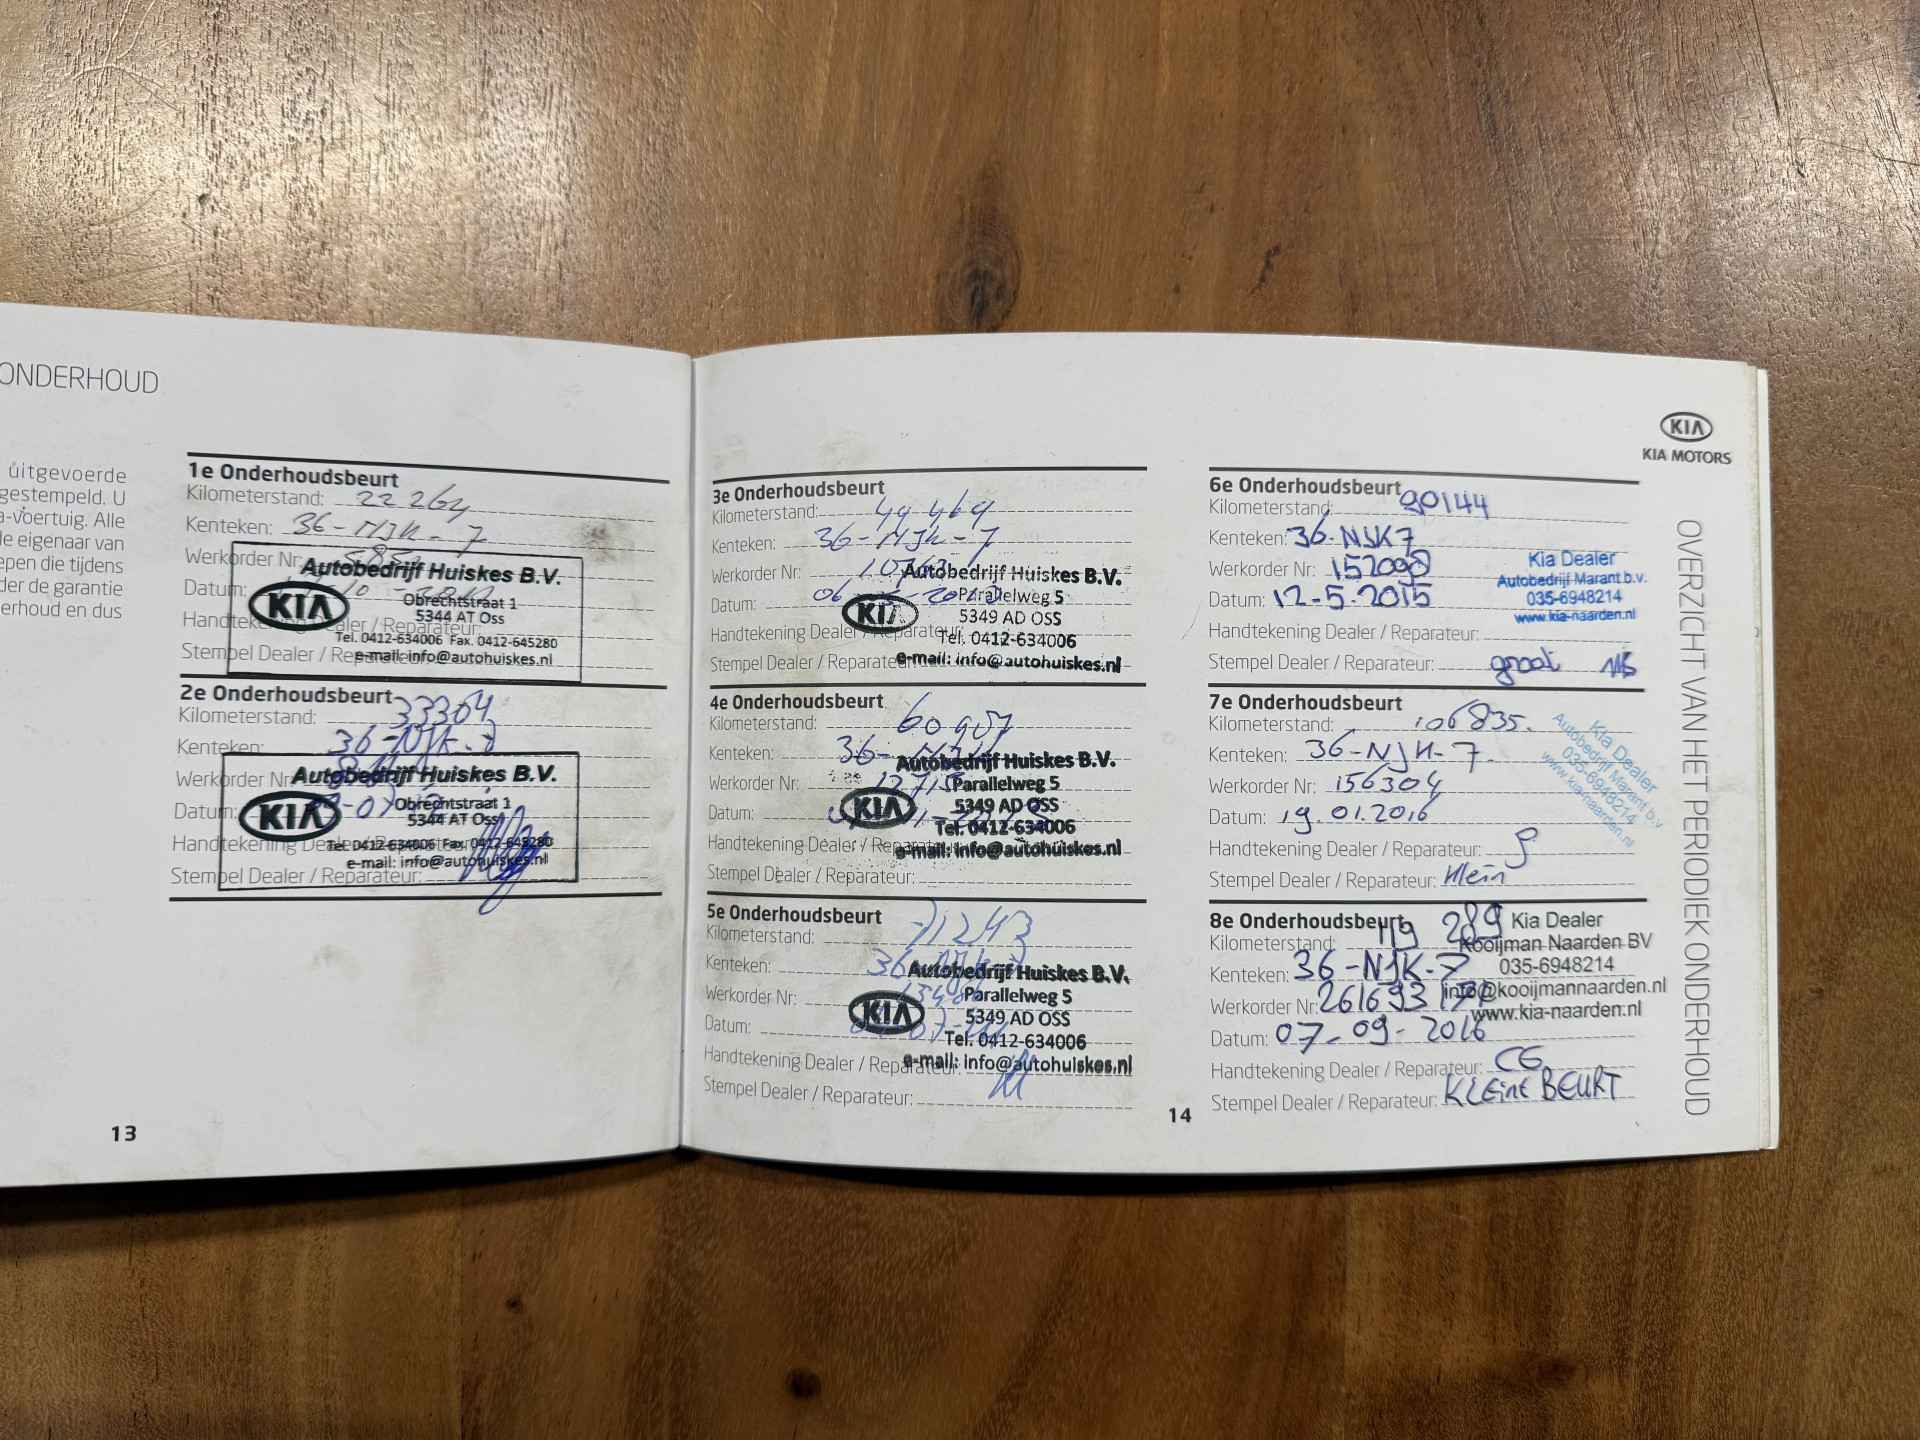 ONDERHOUD
uitgevoerde
gestempeld. U
a-voertuig. Alle
de eigenaar van
epen die tijdens
der de garantie
erhoud en dus
13
1e Onderhoudsbeurt
Kilometerstand: 22 264
Kenteken: 36-NJK-7
Werkorder Nr:
Datum:
Handtekening Dealer / Reparateur:
Stempel Dealer / Reparateur:
Autobedrijf Huiskes B.V.
KIA
Obrechtstraat 1
5344 AT Oss
Tel. 0412-634006 Fax. 0412-645280
e-mail: info@autohuiskes.nl
2e Onderhoudsbeurt
Kilometerstand: 33304
Kenteken: 36-NJK-7
Werkorder Nr:
Datum:
Handtekening Dealer / Reparateur:
Stempel Dealer / Reparateur:
Autobedrijf Huiskes B.V.
KIA
Obrechtstraat 1
5344 AT Oss
Tel. 0412-634006 Fax. 0412-645280
e-mail: info@autohuiskes.nl
3e Onderhoudsbeurt
Kilometerstand: 44 469
Kenteken: 36-NJK-7
Werkorder Nr:
Datum:
Handtekening Dealer / Reparateur:
Stempel Dealer / Reparateur:
Autobedrijf Huiskes B.V.
KIA
Parallelweg 5
5349 AD OSS
Tel. 0412-634006
e-mail: info@autohuiskes.nl
4e Onderhoudsbeurt
Kilometerstand:
Kenteken:
Werkorder Nr:
Datum:
Handtekening Dealer / Reparateur:
Stempel Dealer / Reparateur:
Autobedrijf Huiskes B.V.
KIA
Parallelweg 5
5349 AD OSS
Tel. 0412-634006
e-mail: info@autohuiskes.nl
5e Onderhoudsbeurt
Kilometerstand: 71243
Kenteken:
Werkorder Nr:
Datum:
Handtekening Dealer / Reparateur:
Stempel Dealer / Reparateur:
Autobedrijf Huiskes B.V.
KIA
Parallelweg 5
5349 AD OSS
Tel. 0412-634006
e-mail: info@autohuiskes.nl
14
KIA
KIA MOTORS
6e Onderhoudsbeurt
Kilometerstand: 90144
Kenteken: 36-NJK7
Werkorder Nr: 152008
Datum: 12-5-2015
Handtekening Dealer / Reparateur:
Stempel Dealer / Reparateur: groot
Kia Dealer
Autobedrijf Marant b.v.
035-6948214
www.kia-naarden.nl
7e Onderhoudsbeurt
Kilometerstand: 106835.
Kenteken: 36-NJK-7.
Werkorder Nr: 156304
Datum: 19.01.2016
Handtekening Dealer / Reparateur:
Stempel Dealer / Reparateur: Klein
Kia Dealer
Autobedrijf Marant b.v
035-6948214
www.kia-naarden.nl
8e Onderhoudsbeurt
Kilometerstand: 119 289
Kenteken: 36-NJK-7
Werkorder Nr:
Datum: 07-09-2016
Handtekening Dealer / Reparateur: CG
Stempel Dealer / Reparateur: KLEINE BEURT
Kia Dealer
Kooijman Naarden BV
035-6948214
info@kooijmannaarden.nl
www.kia-naarden.nl
OVERZICHT VAN HET PERIODIEK ONDERHOUD